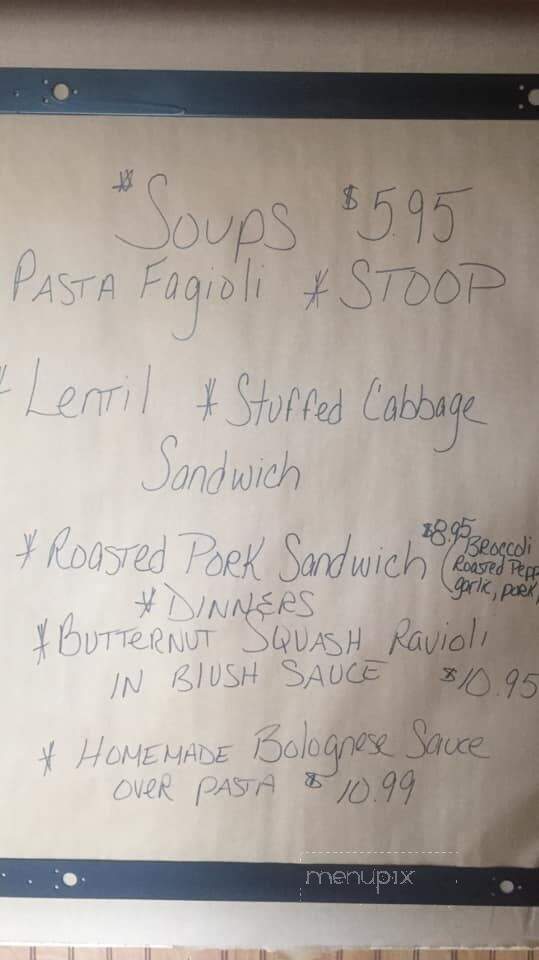 * Soups $5.95
PASTA Fagioli * STOOP
* Lentil * Stuffed Cabbage
Sandwich
* ROASTED PORK Sandwich $8.95 (Broccoli
Roasted Pepp
garlic, pork,
* DINNERS
* BUTTERNUT SQUASH Ravioli
IN BLUSH SAUCE $10.95
* HOMEMADE Bolognese Sauce
OVER PASTA $10.99
menupix